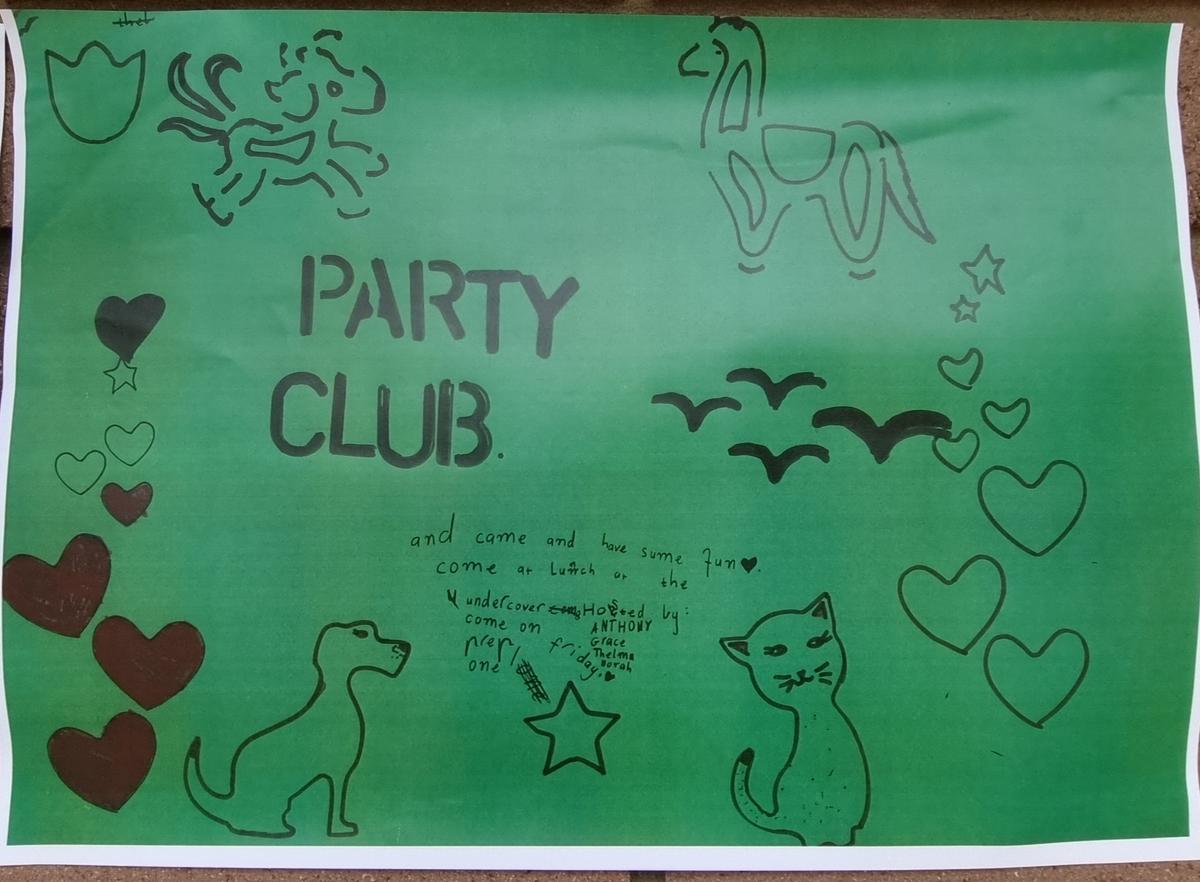 PARTY
CLUB.
and came and have sume fun
come at Lunch at the
undercover Hosted by:
come on ANTHONY
prep/ friday. Grace
one Thelma
Norah